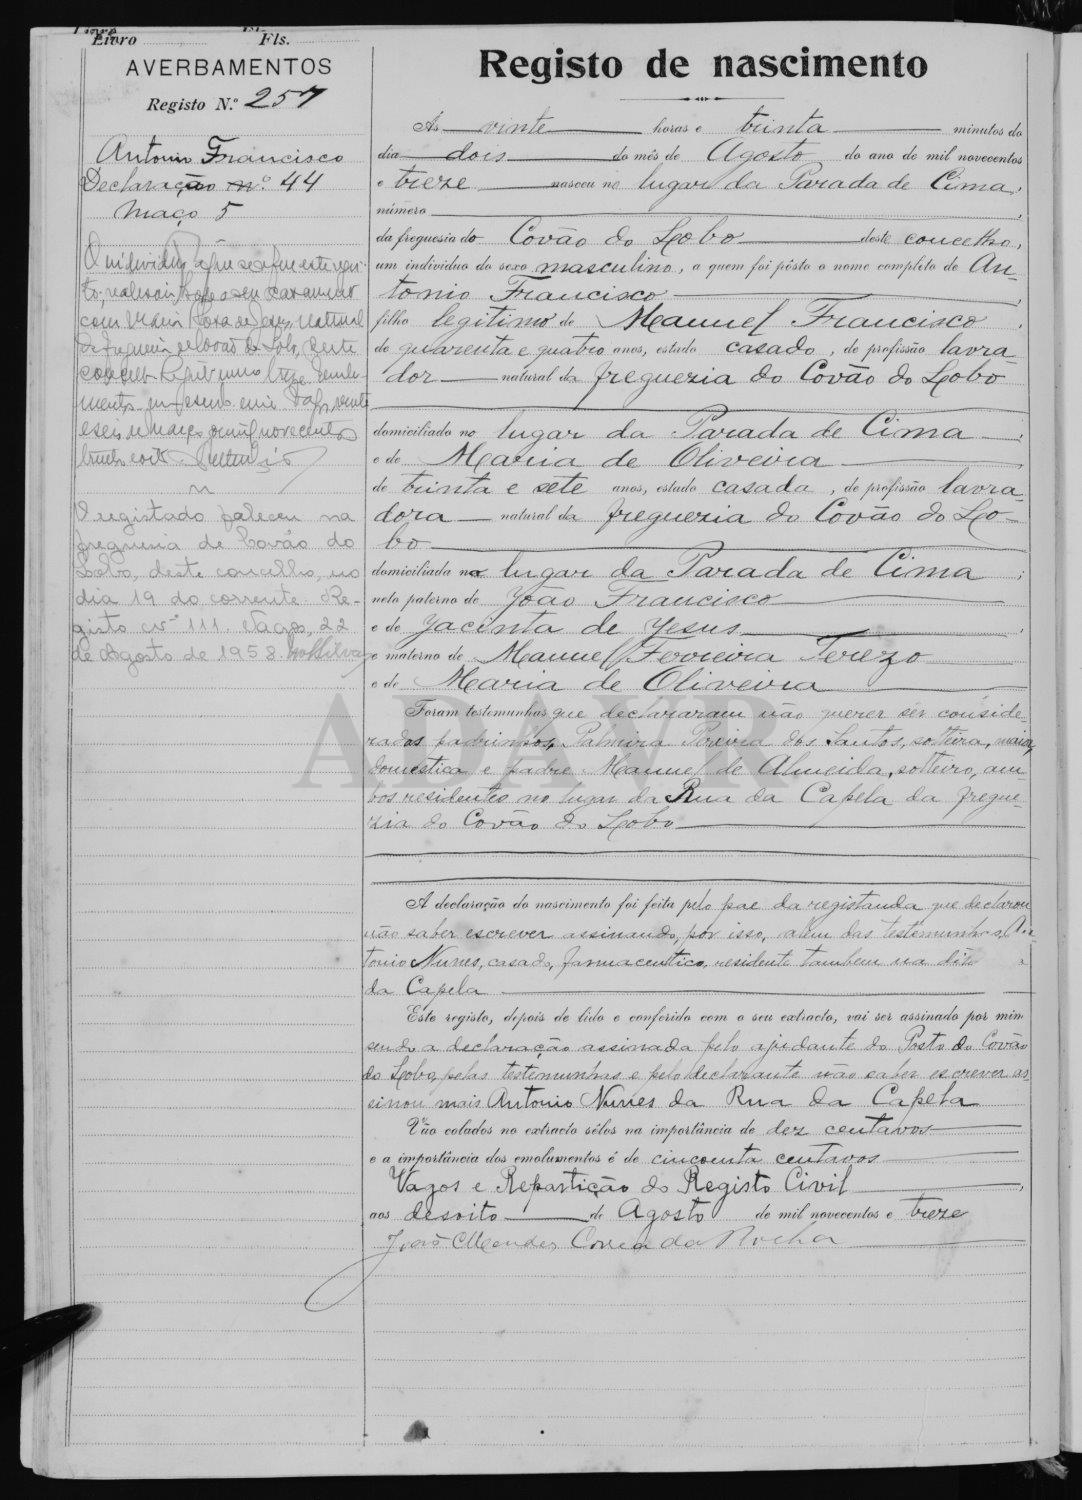 Livro Fls.
AVERBAMENTOS
Registo N.º 257
Antonio Francisco
Declaração n.º 44
Maço 5
O individuo a que se refere este regis-
to, realisou hoje o seu casamento
com Maria Rosa de Jesus, natural
da freguesia de Covão do Lobo, deste
concelho. Registo numero treze.
Vagos, vinte
e seis de Março de mil novecentos
trinta e oito.
O registado faleceu na
freguesia de Covão do
Lobo, deste concelho, no
dia 19 do corrente. Re-
gisto n.º 111. Vagos, 22
de Agosto de 1958.
Registo de nascimento
Ás vinte horas e trinta minutos do
dia dois do mês de Agosto do ano de mil novecentos
e treze nasceu no lugar da Parada de Cima,
número
da freguesia do Covão do Lobo deste concelho,
um individuo do sexo masculino, a quem foi pôsto o nome completo de An-
tonio Francisco
filho legitimo de Manuel Francisco
de quarenta e quatro anos, estado casado, de profissão lavra-
dor natural da freguezia do Covão do Lobo
domiciliado no lugar da Parada de Cima
e de Maria de Oliveira
de trinta e sete anos, estado casada, de profissão lavra-
dora natural da freguezia do Covão do Lo-
bo
domiciliada no lugar da Parada de Cima;
neto paterno de João Francisco
e de Jacinta de Jesus
e materno de Manuel Ferreira Terezo
e de Maria de Oliveira
Foram testemunhas que declararam não querer ser conside-
rados padrinhos, Palmira Pereira dos Santos, solteira, maior,
domestica e padre Manuel de Almeida, solteiro, am-
bos residentes no lugar da Rua da Capela da fregue-
zia do Covão do Lobo
A declaração do nascimento foi feita pelo pae da registanda que declarou
não saber escrever assinando, por isso, alem das testemunhas, An-
tonio Nunes, casado, farmaceutico, residente tambem na dita
da Capela
Este registo, depois de lido e conferido com o seu extracto, vai ser assinado por mim
sendo a declaração assinada pelo ajudante do Posto do Covão
do Lobo, pelas testemunhas e pelo declarante não saber escrever as-
sinou mais Antonio Nunes da Rua da Capela
Vão colados no extracto sêlos na importância de dez centavos
e a importância dos emolumentos é de cincoenta centavos
Vagos e Repartição do Registo Civil,
aos desoito de Agosto de mil novecentos e treze
João Mendes Correa da Rocha
ADAVR